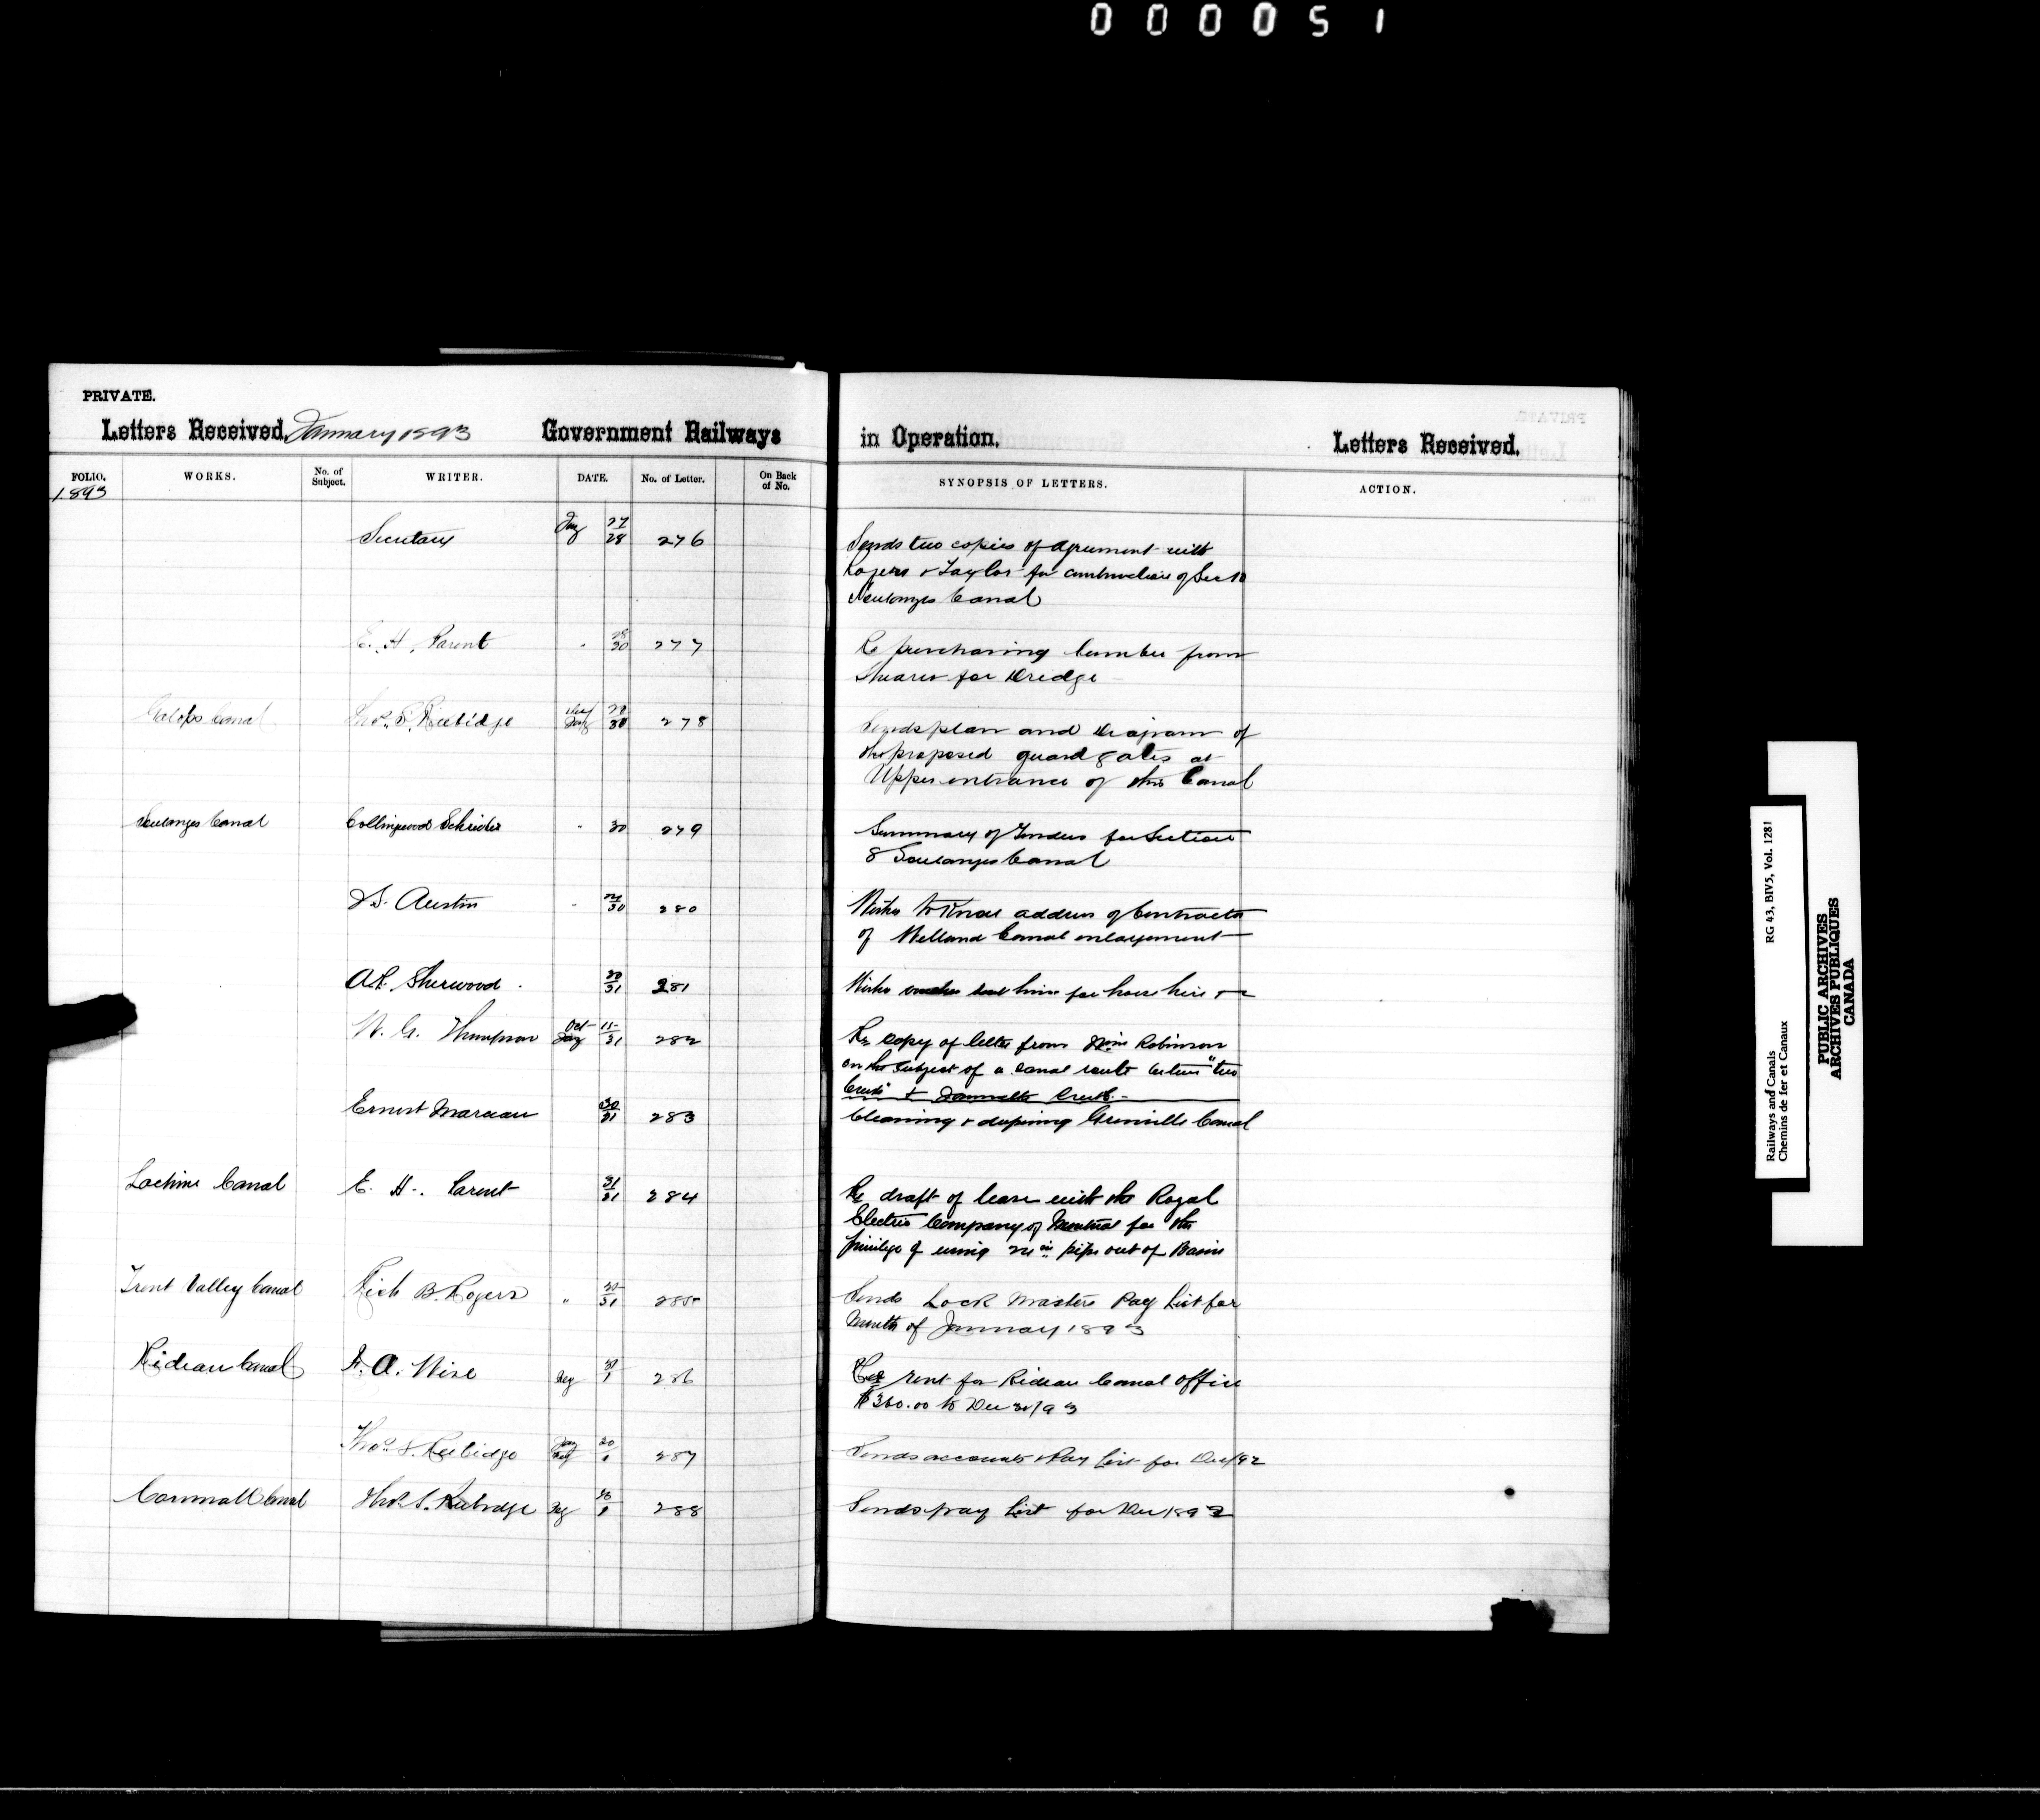 000051
PRIVATE.
Letters Received. January 1893 Government Railways in Operation. Letters Received.
FOLIO. WORKS. No. of Subject. WRITER. DATE. No. of Letter. On Back of No. SYNOPSIS OF LETTERS. ACTION.
1893
Secretary Jany 27/28 276 Sends two copies of agreement with
Rogers & Taylor for construction of Sec 10
Soulanges Canal
E. H. Parent " 28/30 277 Re purchasing lumber from
Shearer for Dredge
Galops Canal Thos. S. Rubidge Jany 30 278 Sends plan and diagram of
the proposed guard gates at
Upper entrance of this Canal
Soulanges Canal Collingwood Schreiber " 30 279 Summary of Tenders for Section
8 Soulanges Canal
J. S. Austin " 30 280 Wishes to know address of Contractor
of Welland Canal enlargement
A.P. Sherwood 30/31 281 Wishes voucher sent him for horse hire &c
W. G. Thompson Oct Jany 15/31 282 Re copy of letter from Wm Robinson
on the subject of a canal route between "two
Creek" & Creek
Ernest Marceau 30/31 283 Cleaning & deepening Grenville Canal
Lachine Canal E. H. Parent 31/31 284 Re draft of lease with the Royal
Electric Company of Montreal for the
privilege of using 24 in pipe out of Basin
Trent Valley Canal Rich B. Rogers " 30/31 285 Sends Lock Masters Pay List for
Month of January 1893
Rideau Canal F. A. Wise Feby 30/1 286 Re rent for Rideau Canal Office
$360.00 to Dec 31/93
Thos. S. Rubidge Jany Feby 30/1 287 Sends accounts & Pay List for Dec/92
Cornwall Canal Thos. S. Rubidge Feby 30/1 288 Sends pay List for Dec 1892
Railways and Canals RG 43, BIV5, Vol. 1281
Chemins de fer et Canaux
PUBLIC ARCHIVES
ARCHIVES PUBLIQUES
CANADA